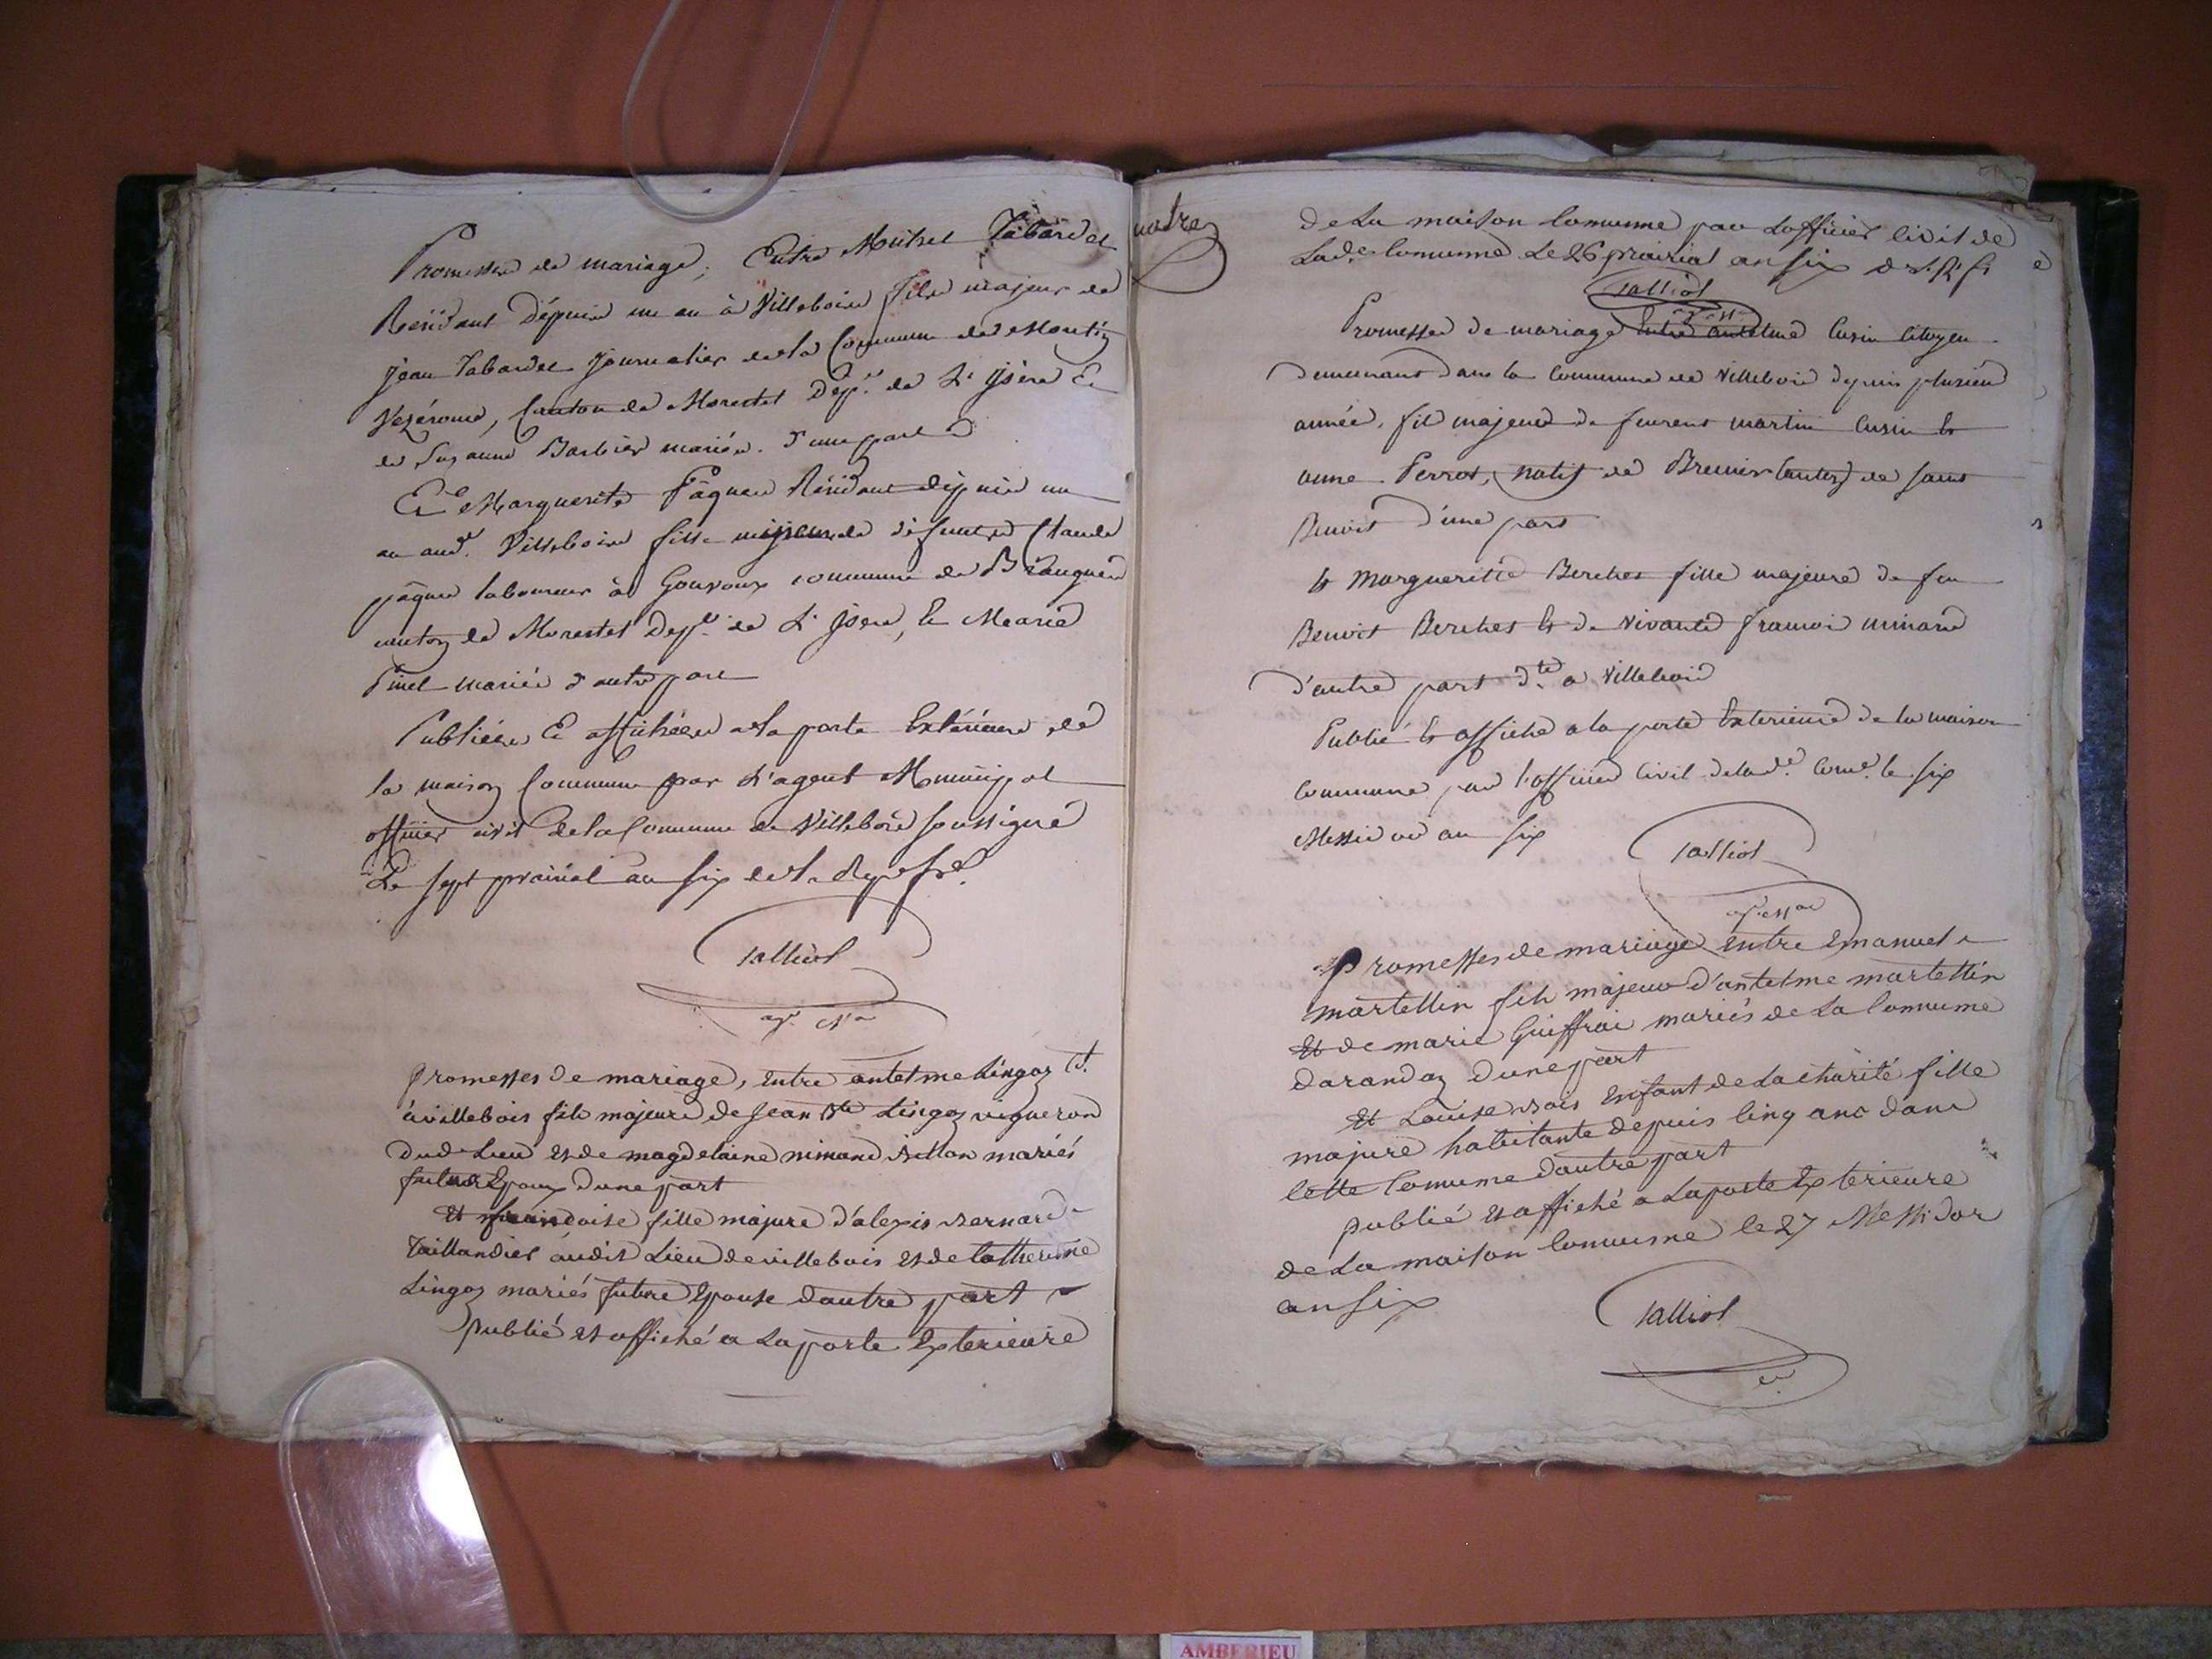 Promesse de mariage, Entre Michel Tabardet
Résidant dépuis un an à Villebois fils majeur de
jean Tabardet journalier de la Commune de
Vezéronce, Canton de Morestel Dépt. de L'isère Et
de Suzanne Barbier mariés. d'une part
Et Marguerite Pâques Résidant dépuis un
an aud. Villebois fille majeure de défunts Claude
pâques laboureur à Gouvoux commune de Brangues
canton de Morestel Dept. de L'Isère, Et Marie
Pinel mariés d'autre part
Publiées Et affichées a la porte Extérieure de
la maison Commune par L'agent Municipal
officier civil de la Commune de Villebois soussigné
Le sept prairial an six de la Rep. fse.
talliot
agt.
promesses de mariage, entre antelme Lingoz dt.
à villebois fils majeure de jean Bte Lingoz vigneron
dud Lieu et de magdelaine minand mariés
futur Epoux dune part
Et francoise fille majure d'alexis Bernard
Taillandier audit Lieu de villebois et de Catherine
Lingoz mariés future Epouse dautre part
publié et affiché a La porte Exterieure
de La maison Comunne par Lofficier Civil de
Lad.e Comunne Le 26 prairial an six d. l. R. fr
talliot
Promesse de mariage Entre antelme Cusin Citoyen
demeurant dans la Commune de Villebois depuis plusieurs
année, fils majeur de feurent martin Cusin Et
anne Perrot, natif de Brenier Canton de saint
Benoit d'une part
Et Margueritte Berchet fille majeure de feu
Benoit Berchet Et de vivante francoi minand
d'autre part dte a Villebois
Publié Et affiché a la porte Exterieure de la maison
Commune par l'officier Civil de lad.e Comne. le six
Messidor an six
talliot
agt.
promesses de mariage entre Emanuel
martellin fils majeur d'antelme martellin
Et de marie Guiffrai mariés de La Commune
darandaz dune part
Et Louise Bois enfant de La charité fille
majure habitante depuis Cinq ans dans
Cette Comune dautre part
publié et affiché a La porte Exterieure
de La maison Comunne le 27 Messidor
an six
talliot
AMBERIEU